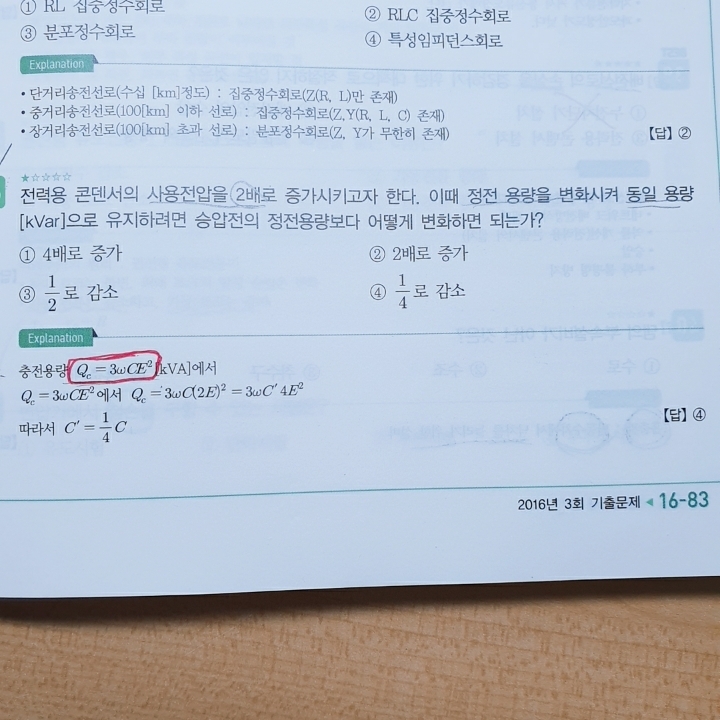 ① RL 집중정수회로
② RLC 집중정수회로
③ 분포정수회로
④ 특성임피던스회로
Explanation
• 단거리송전선로(수십 [km]정도) : 집중정수회로(Z(R, L)만 존재)
• 중거리송전선로(100[km] 이하 선로) : 집중정수회로(Z,Y(R, L, C) 존재)
• 장거리송전선로(100[km] 초과 선로) : 분포정수회로(Z, Y가 무한히 존재)
【답】②
★☆☆☆☆
전력용 콘덴서의 사용전압을 2배로 증가시키고자 한다. 이때 정전 용량을 변화시켜 동일 용량
[kVar]으로 유지하려면 승압전의 정전용량보다 어떻게 변화하면 되는가?
① 4배로 증가
② 2배로 증가
③ 1/2로 감소
④ 1/4로 감소
Explanation
충전용량 Q_c = 3ωCE² [kVA]에서
Q_c = 3ωCE² 에서 Q_c = 3ωC(2E)² = 3ωC′4E²
따라서 C′ = 1/4 C
【답】④
2016년 3회 기출문제 ◂ 16-83